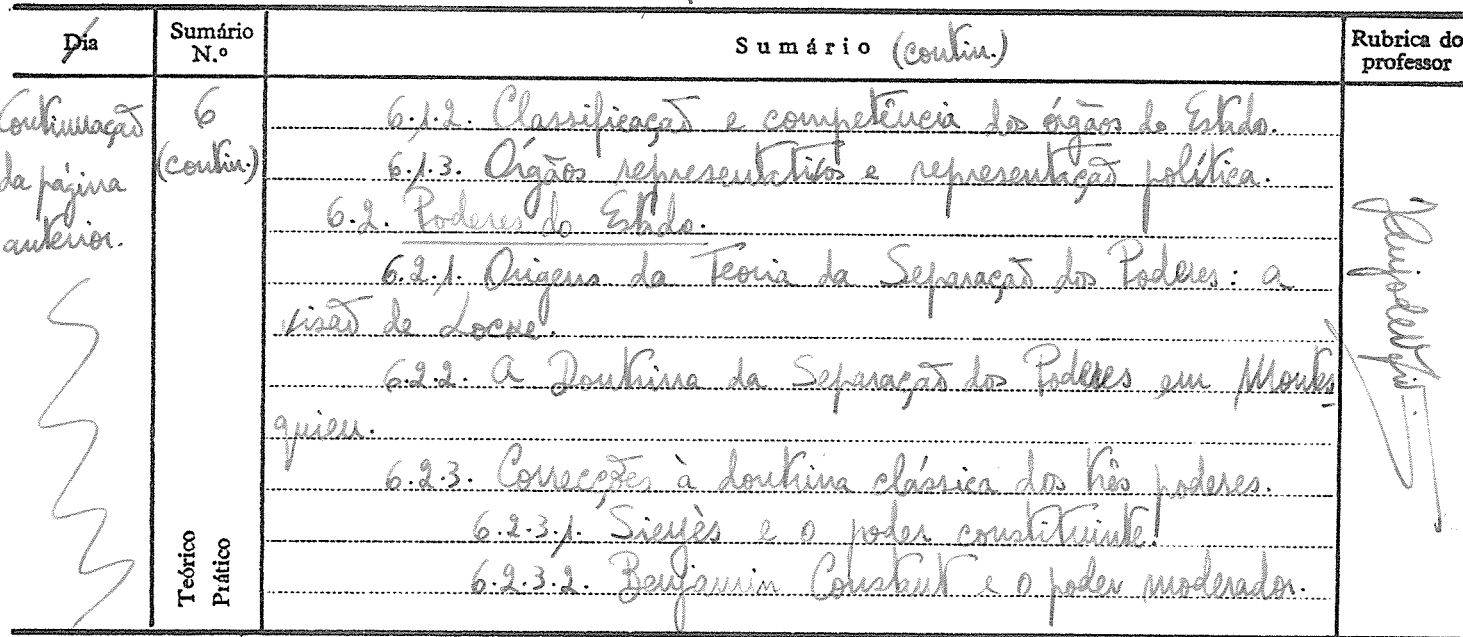 Dia
Sumário N.º
Sumário (contin.)
Rubrica do professor
Continuação da página anterior.
6 (contin.)
6.1.2. Classificação e competência dos órgãos do Estado.
6.1.3. Órgãos representativos e representação política.
6.2. Poderes do Estado.
6.2.1. Origens da Teoria da Separação dos Poderes: a
visão de Locke.
6.2.2. A Doutrina da Separação dos Poderes em Montes-
quieu.
6.2.3. Correcções à doutrina clássica dos três poderes.
6.2.3.1. Sieyès e o poder constituinte.
6.2.3.2. Benjamin Constant e o poder moderador.
Teórico
Prático